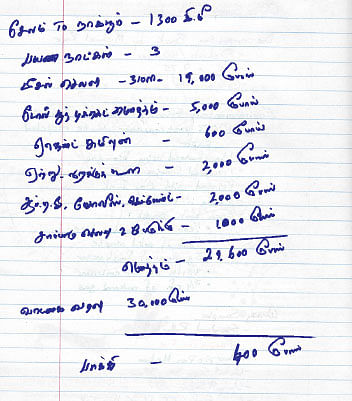 சேலம் To நாக்பூர் - 1300 கி.மீ
பயண நாட்கள் - 3
டீசல் செலவு - 310லி - 19,000 ரூபாய்
டோல் கேட் - 5,000 ரூபாய்
கமிஷன் - 600 ரூபாய்
ஏற்று இறக்கு கூலி - 2,000 ரூபாய்
ஆர்.டி.ஓ, போலீஸ், - 2,000 ரூபாய்
சாப்பாடு செலவு 2 பேருக்கு - 1000 ரூபாய்
மொத்தம் - 29,600 ரூபாய்
வாடகை வரவு 30,000 ரூபாய்
பாக்கி - 400 ரூபாய்